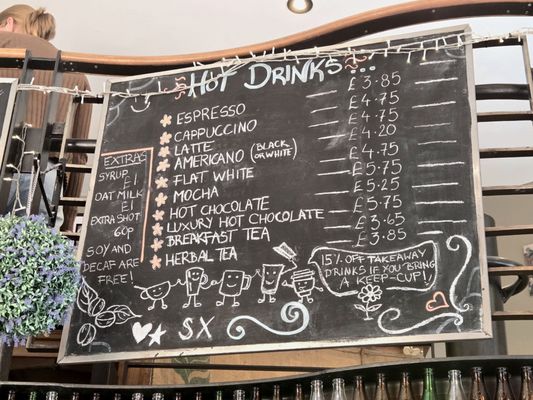 HOT DRINKS...
ESPRESSO £3.85
CAPPUCCINO £4.75
LATTE £4.75
AMERICANO (BLACK OR WHITE) £4.20
FLAT WHITE £4.75
MOCHA £5.75
HOT CHOCOLATE £5.25
LUXURY HOT CHOCOLATE £5.75
BREAKFAST TEA £3.65
HERBAL TEA £3.85
EXTRAS
SYRUP
£1
OAT MILK
£1
EXTRA SHOT
60p
SOY AND
DECAF ARE
FREE!
15% OFF TAKEAWAY
DRINKS IF YOU BRING
A KEEP-CUP!
SX